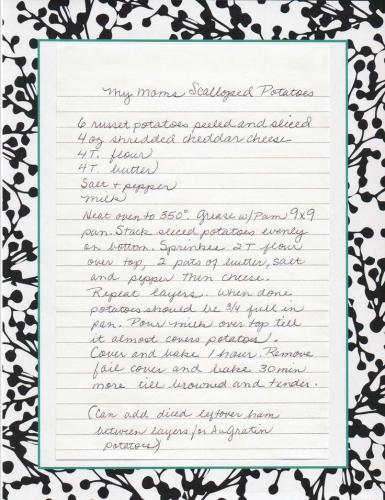 My Moms Scalloped Potatoes
6 russet potatoes peeled and sliced
4 oz shredded cheddar cheese
4T. flour
4T. butter
Salt + pepper
Milk
Heat oven to 350°. Grease w/Pam 9x9
pan. Stack sliced potatoes evenly
on bottom. Sprinkle 2 T flour
over top, 2 pats of butter, salt
and pepper then cheese.
Repeat layers. When done
potatoes should be 3/4 full in
pan. Pour milk over top till
it almost covers potatoes.
Cover and bake 1 hour. Remove
foil cover and bake 30 min
more till browned and tender.
(Can add diced leftover ham
between layers for AuGratin
potatoes)